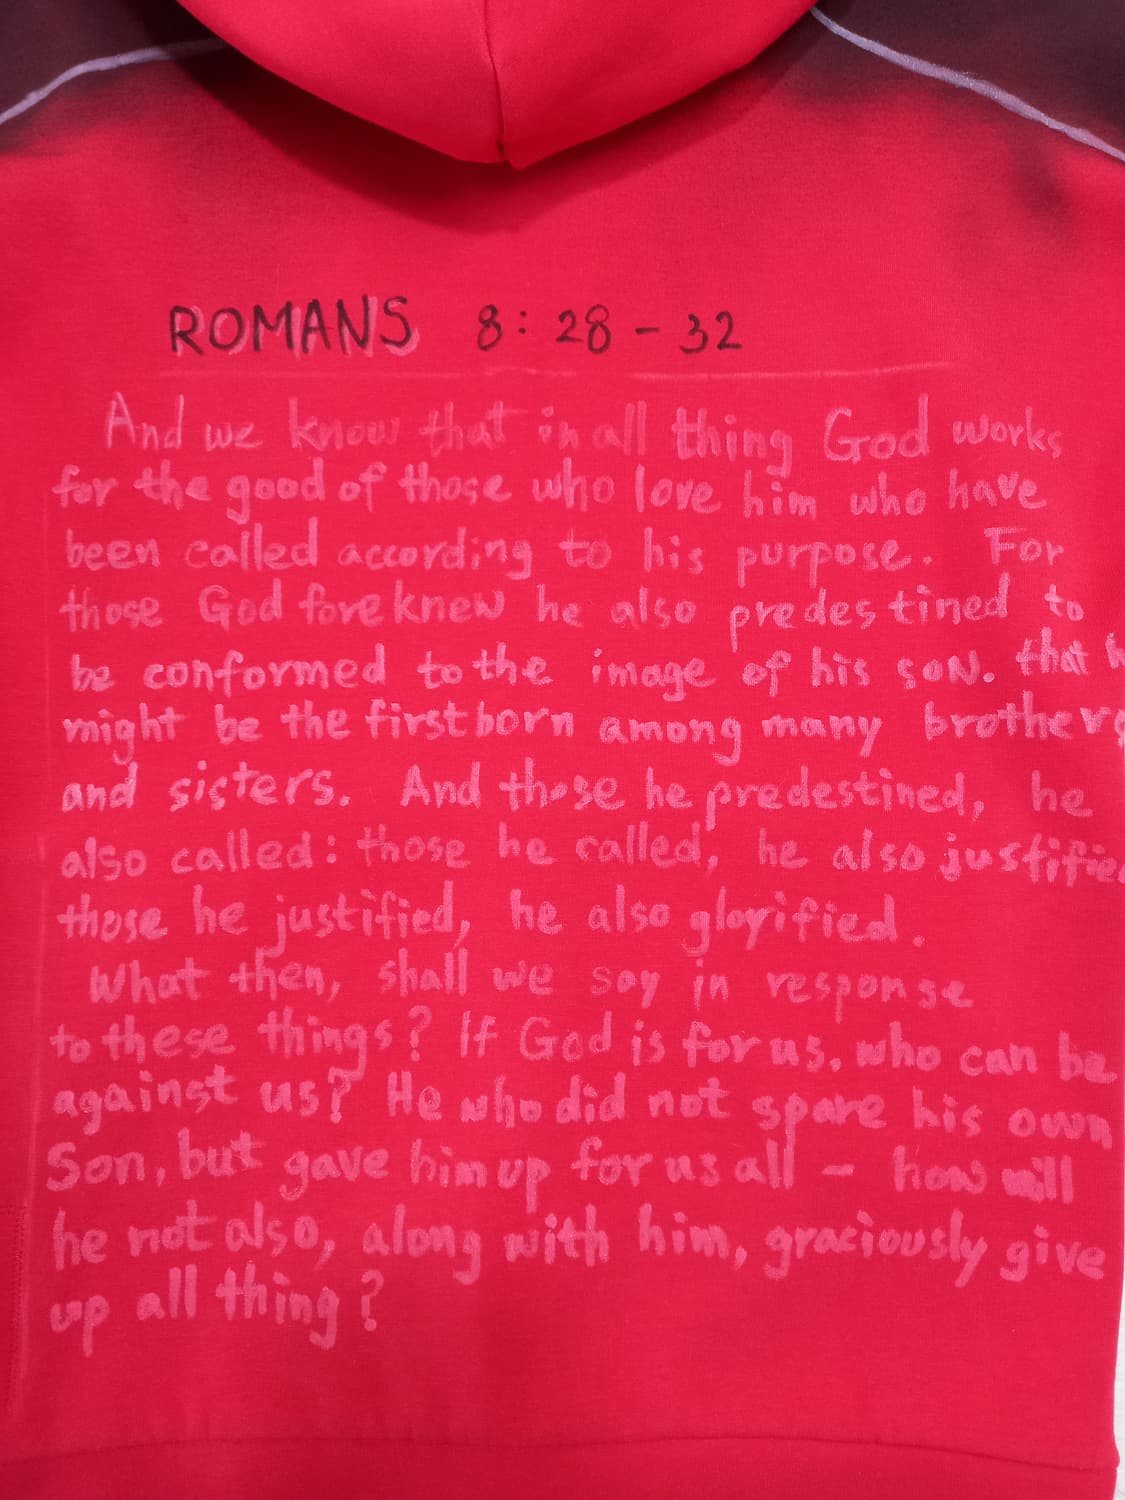 ROMANS 8:28-32
And we know that in all thing God works
for the good of those who love him who have
been called according to his purpose. For
those God foreknew he also predestined to
be conformed to the image of his soN. that
might be the firstborn among many brothers
and sisters. And those he predestined, he
also called: those he called, he also justified
those he justified, he also glorified.
What then, shall we say in response
to these things? If God is for us. who can be
against us? He who did not spare his own
Son, but gave him up for us all – how will
he not also, along with him, graciously give
up all thing?